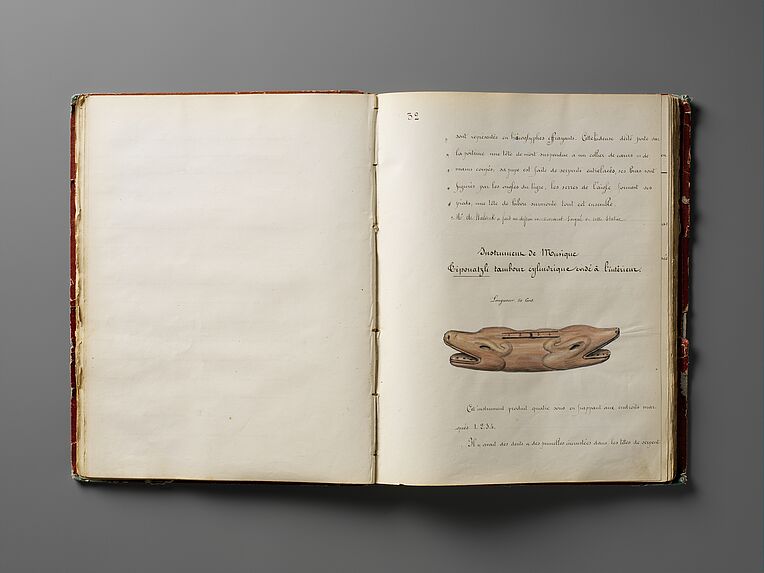 32
" sont représentés en hiéroglyphes effrayants. Cette hideuse déité porte sur
" la poitrine une tête de mort suspendue à un collier de cœurs et de
" mains coupés, sa jupe est faite de serpents entrelacés, ses bras sont
" figurés par les ongles du tigre, les serres de l'aigle forment ses
" pieds, une tête de hibou surmonte tout cet ensemble.
Mr. de Waldeck a fait un dessin
Instrument de Musique
Téponatzli tambour cylindrique évidé à l'intérieur.
Longueur 60 Cent.
Cet instrument produit quatre sons en frappant aux endroits mar-
qués 1. 2. 3. 4.
Il y avait des dents et des prunelles incrustées dans les têtes de serpent